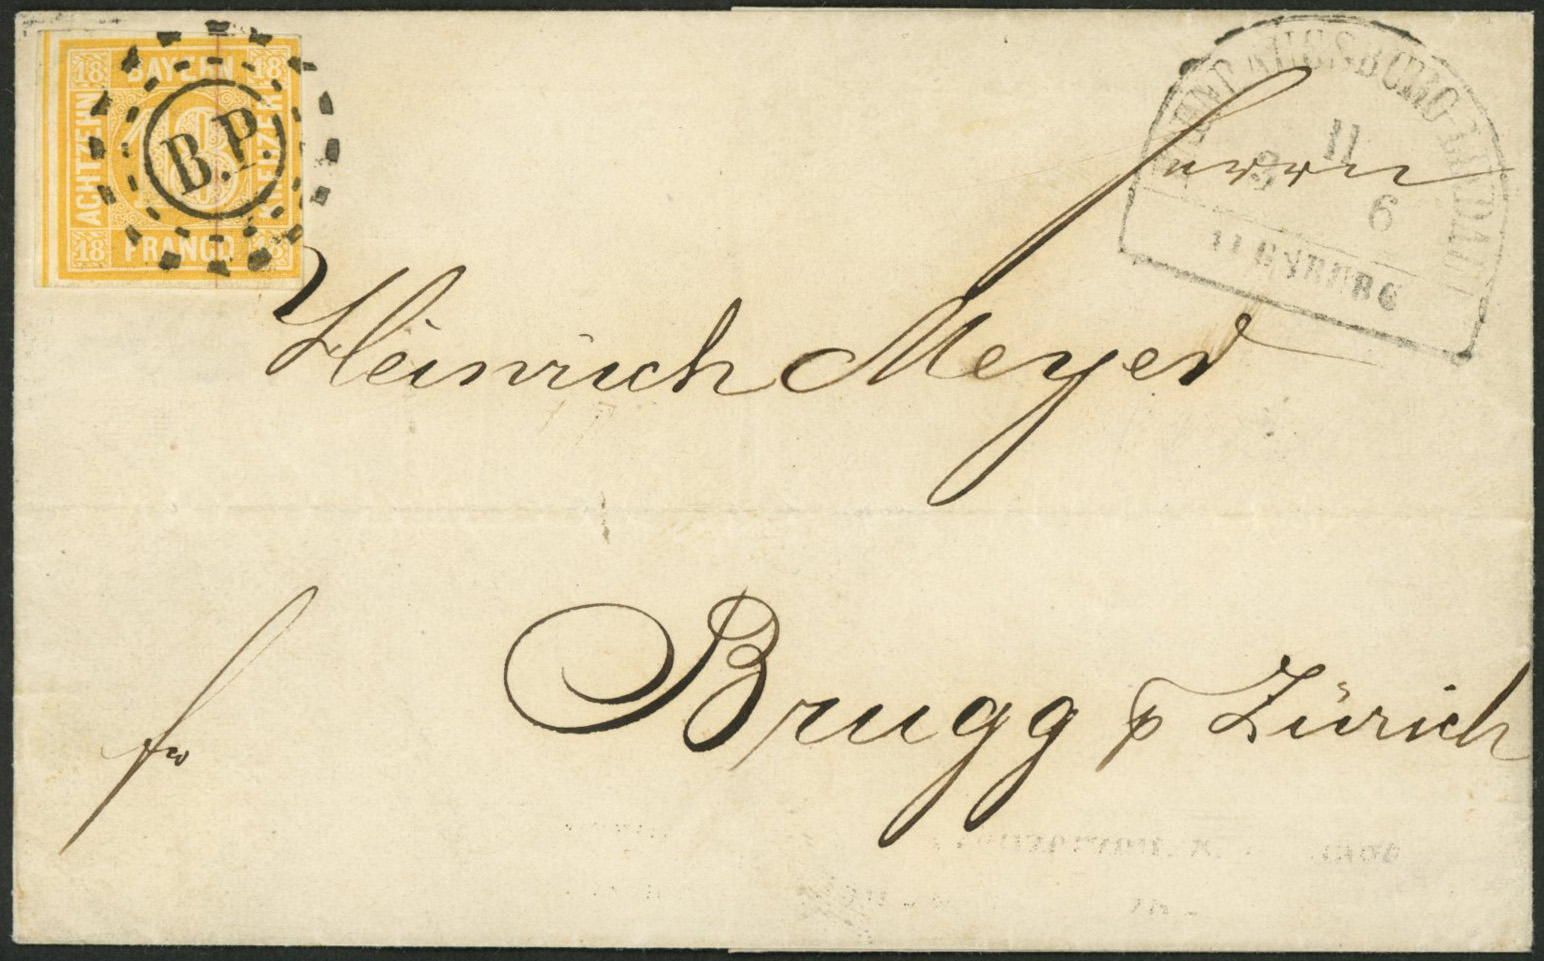 18 BAYERN 18
ACHTZEHN 18 KREUZER
18 FRANCO 18
B.P.
AUGSBURG-LINDAU
11
3 6
Herrn
Heinrich Meyer
Brugg p Zürich
fr